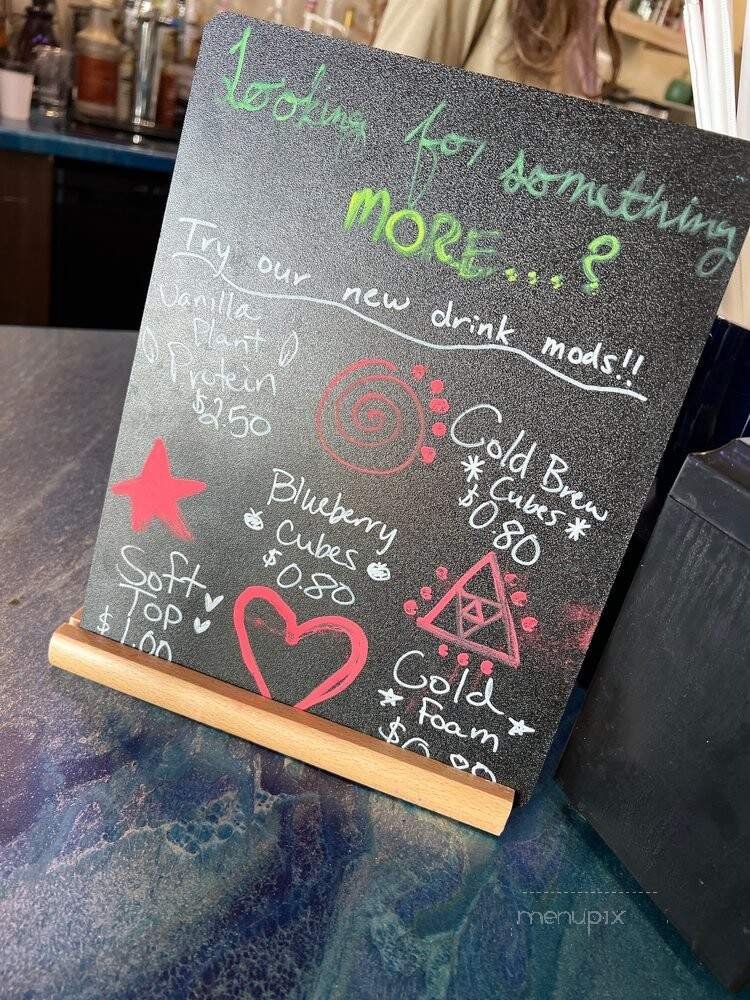 Looking for something
MORE....?
Try our new drink mods!!
Vanilla
Plant
Protein
$2.50
Cold Brew
* Cubes *
$0.80
Blueberry
Cubes
$0.80
Soft
Top
$1.00
Cold
Foam
$0.80
menupix